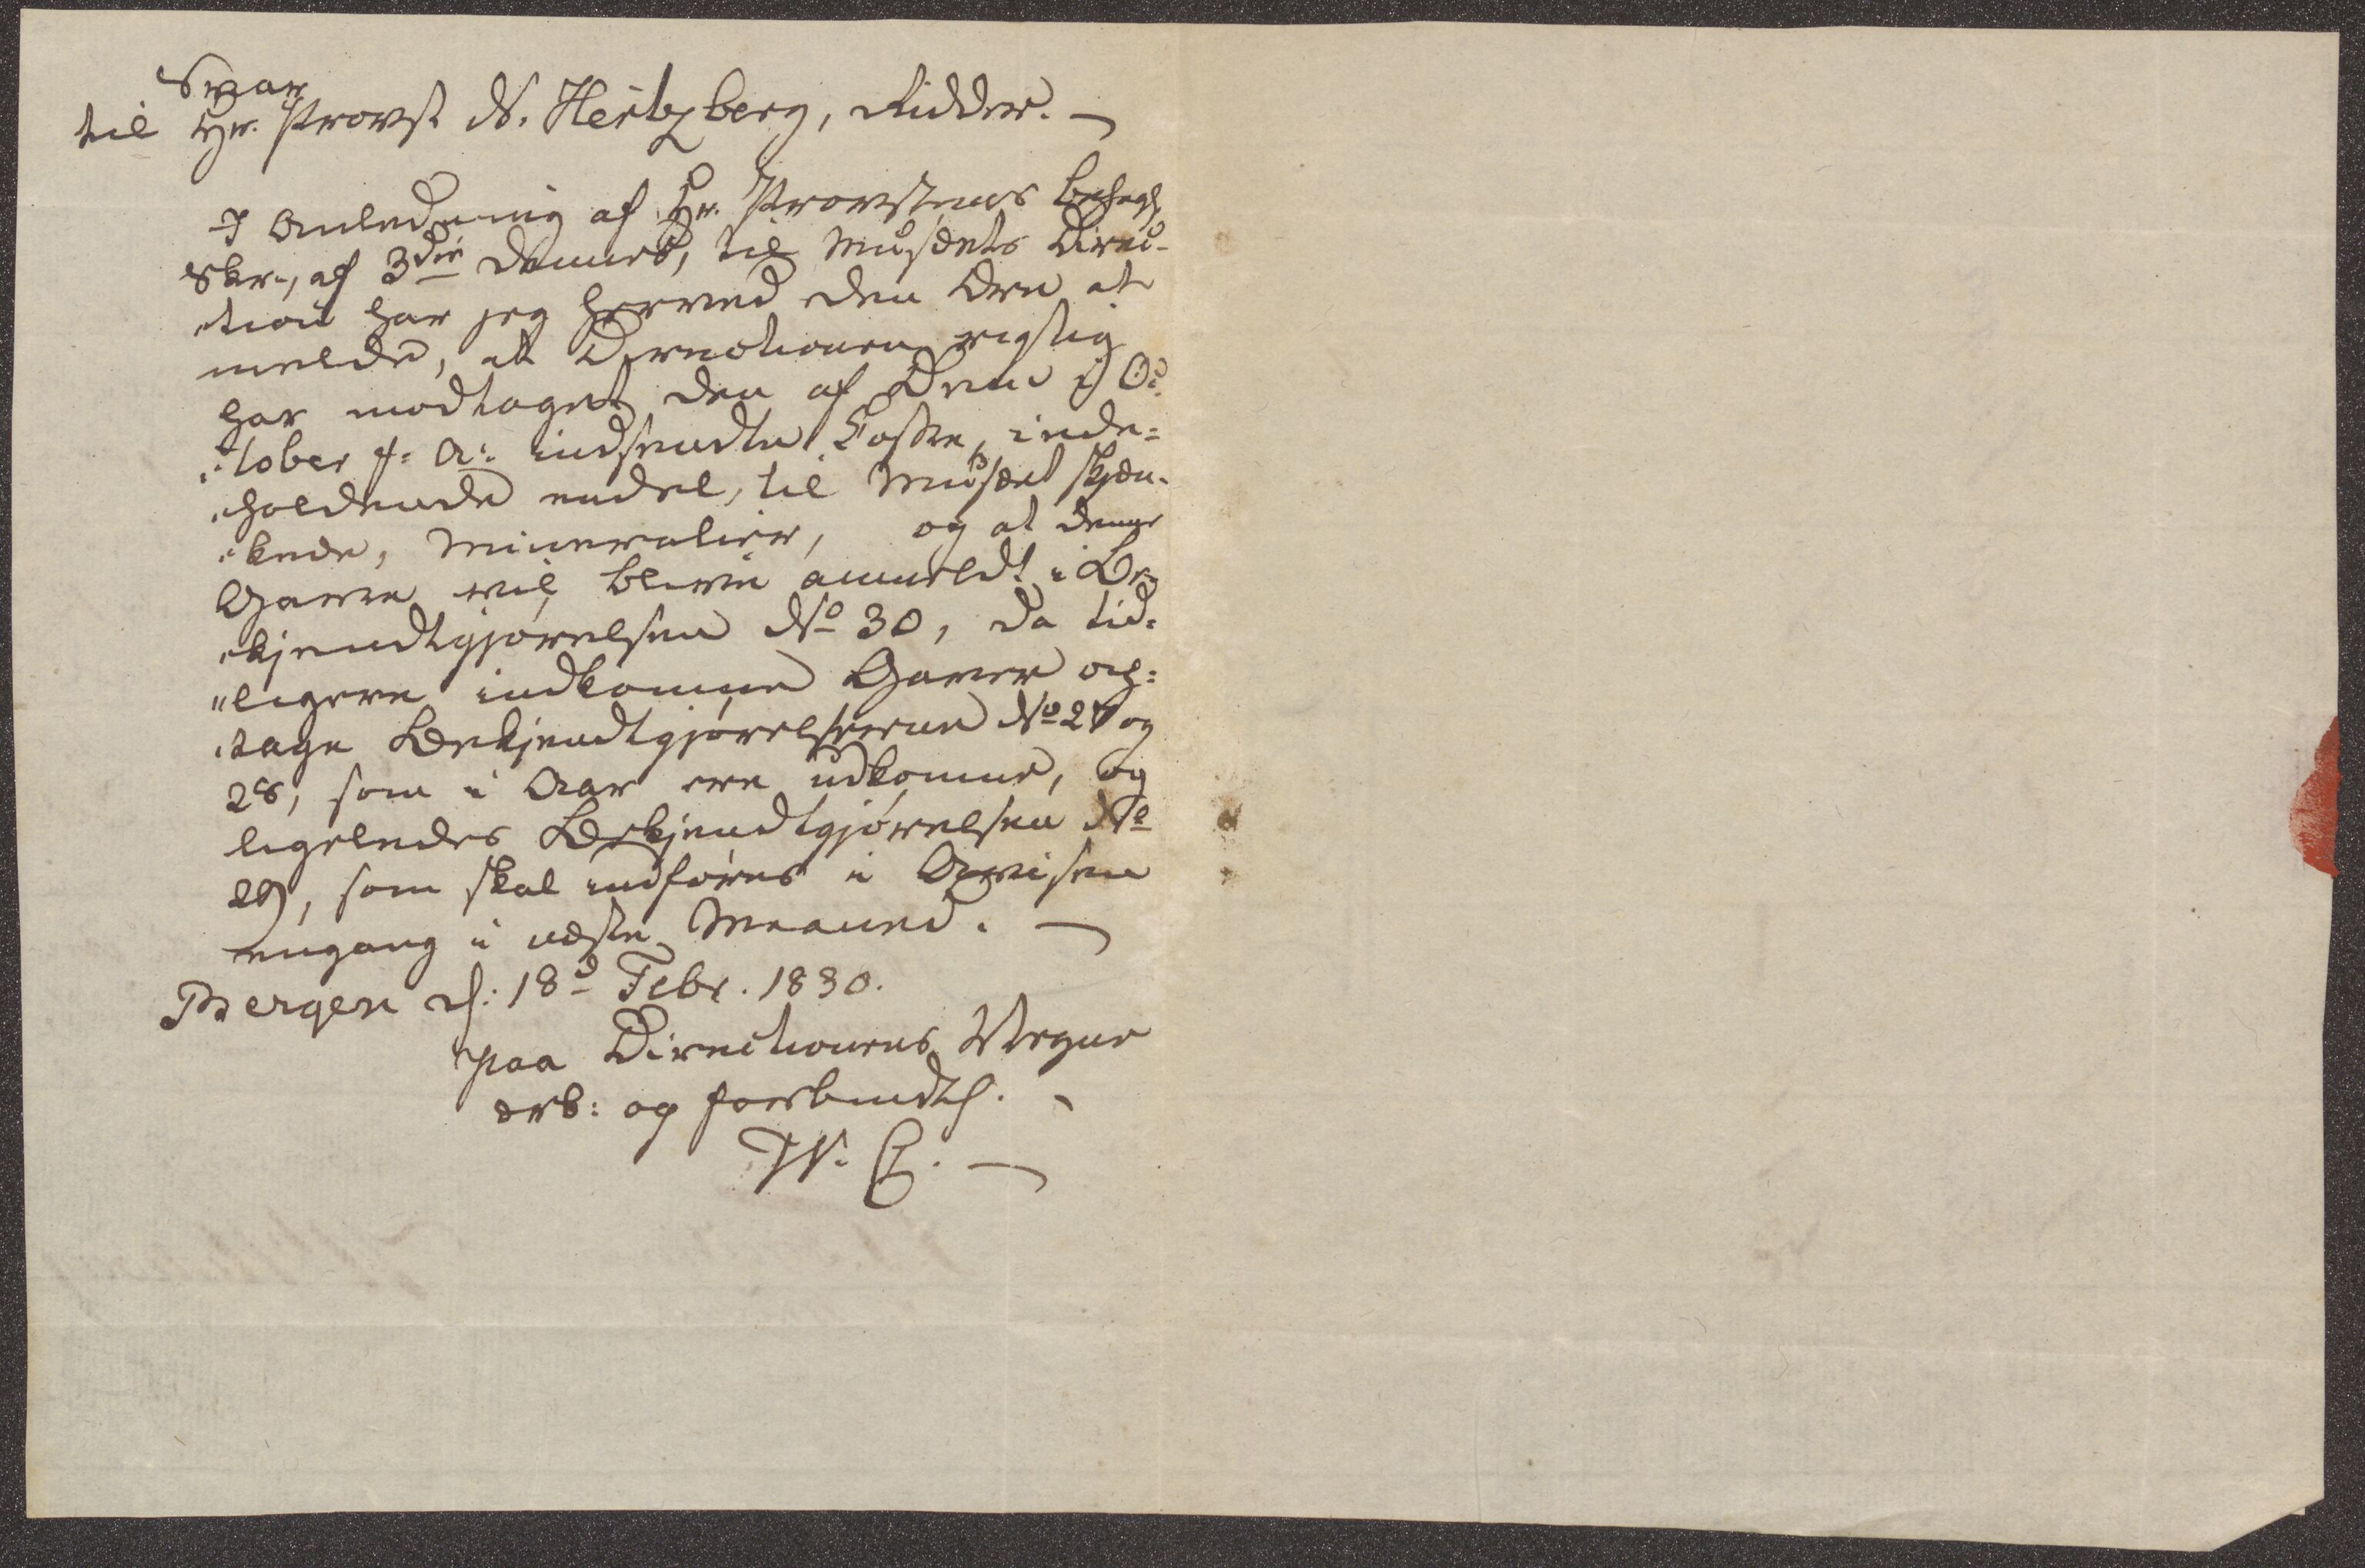 Svar
til Hr. Provst N. Hertzberg, Ridder. —
I Anledning af Hr. Provstens behagl.
Skr., af 3die dennes, til Musæets Direc-
tion har jeg herved den Ære at
melde, at Directionen rigtig
har modtaget den af Dem i Oc-
tober f: A: indsendte Kasse, inde-
holdende endel, til Musæet skjæn-
kede, Mineralier, og at denne
Gave vil blive anmeldt i Be-
kjendtgjørelsen No 30, da tid-
ligere indkomne Gaver op-
tage Bekjendtgjørelserne No 27 og
28, som i Aar ere udkomne, og
ligeledes Bekjendtgjørelsen No
29, som skal indføres i Avisen
engang i næste Maaned. —
Bergen d: 18d Febr. 1830.
paa Directionens Vegne
ærb: og forbindtl. -
W. C. —